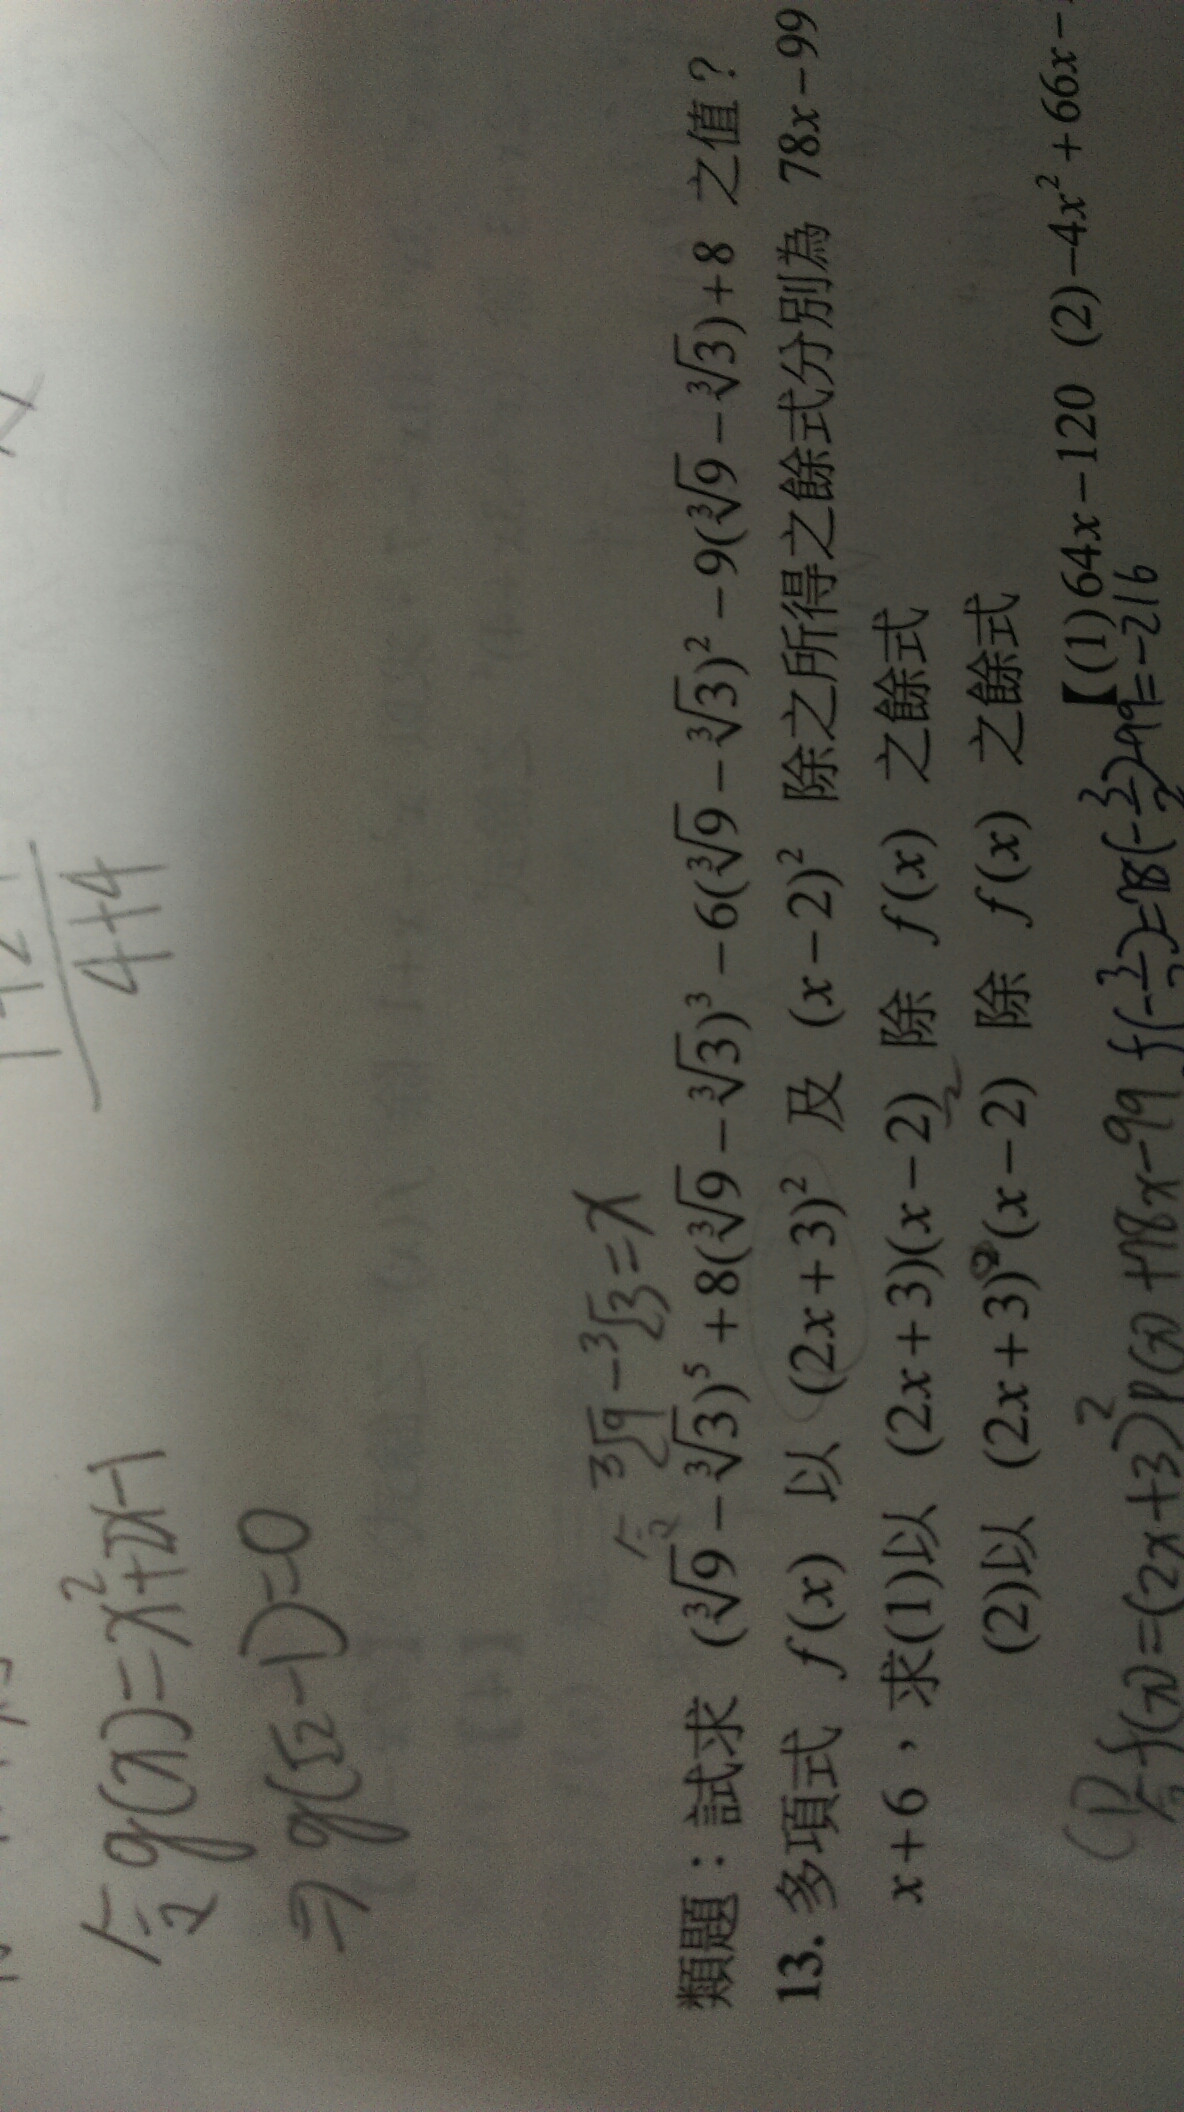 4+4
令 g(x)=x²+2x-1
⇒ g(√2-1)=0
令 ³√9-³√3=x
類題：試求 (³√9-³√3)⁵+8(³√9-³√3)³-6(³√9-³√3)²-9(³√9-³√3)+8 之值？
13. 多項式 f(x) 以 (2x+3)² 及 (x-2)² 除之所得之餘式分別為 78x-99
x+6，求(1)以 (2x+3)(x-2) 除 f(x) 之餘式
(2)以 (2x+3)²(x-2) 除 f(x) 之餘式
【(1)64x-120 (2)-4x²+66x-
(1) 令 f(x)=(2x+3)²P(x)+78x-99 f(-3/2)=78(-3/2)-99=-216